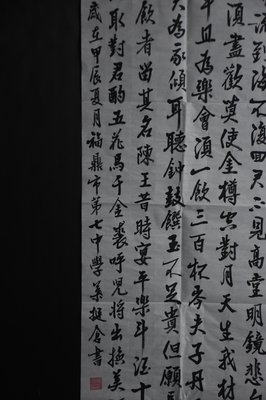 流到海不復回君不見高堂明鏡悲
須盡歡莫使金樽空對月天生我材
且為樂會須一飲三百杯岑夫子丹
為我傾耳聽鐘鼓饌玉不足貴但願
飲者留其名陳王昔時宴平樂斗酒十
取對君酌五花馬千金裘呼兒將出換美
歲在甲辰夏月福鼎市第七中學葉挺倉書